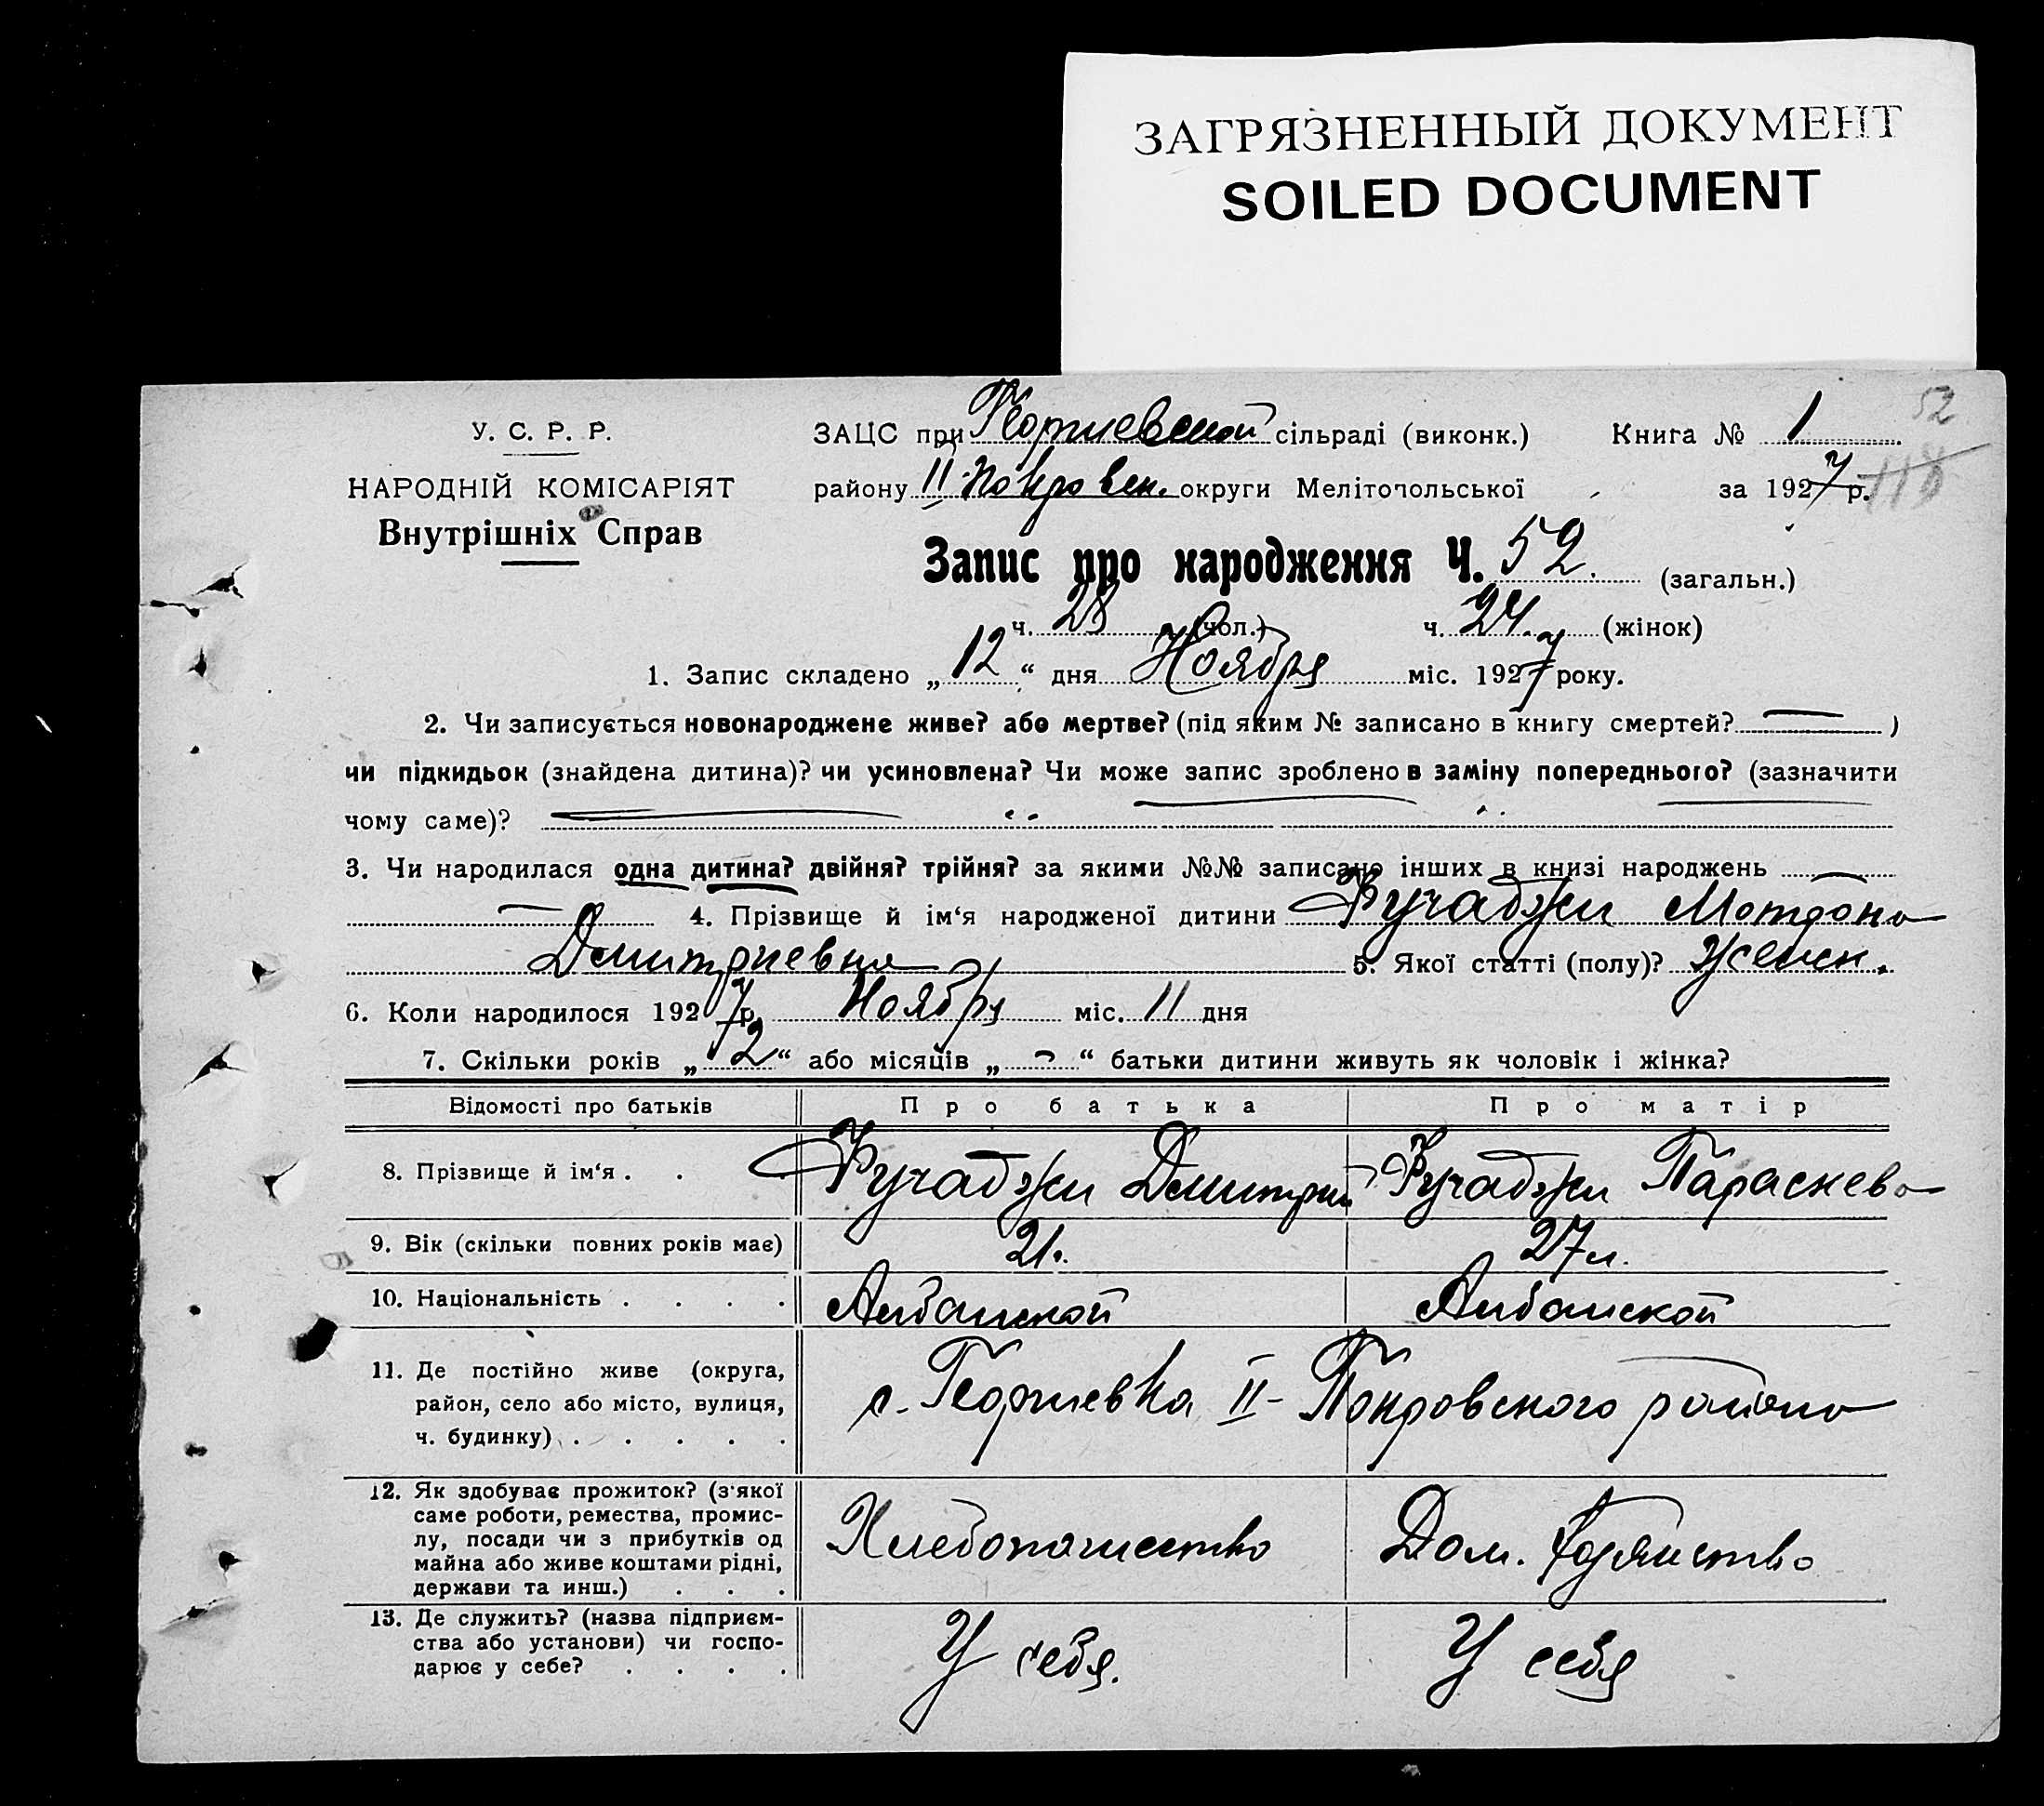 ЗАГРЯЗНЕННЫЙ ДОКУМЕНТ
SOILED DOCUMENT
52
118
У. С. Р. Р.
НАРОДНІЙ КОМІСАРІЯТ
Внутрішніх Справ
ЗАЦС при Георгиевской сільраді (виконк.) Книга № 1
району II Покровск. округи Мелітопольської за 1927 р.
Запис про народження Ч. 52. (загальн.)
ч. 28 (чол.) ч. 24. (жінок)
1. Запис складено „12“ дня Ноября міс. 1927 року.
2. Чи записується новонароджене живе? або мертве? (під яким № записано в книгу смертей? — )
чи підкидьок (знайдена дитина)? чи усиновлена? Чи може запис зроблено в заміну попереднього? (зазначити
чому саме)?
3. Чи народилася одна дитина? двійня? трійня? за якими №№ записано інших в книзі народжень —
— 4. Прізвище й ім‘я народженої дитини Фучаджи Мотрона
Дмитриевна 5. Якої статті (полу)? женск.
6. Коли народилося 1927 р. Ноября міс. 11 дня
7. Скільки років „2“ або місяців „-“ батьки дитини живуть як чоловік і жінка?
Відомості про батьків Про батька Про матір
8. Прізвище й ім‘я . . . Фучаджи Дмитрий Фучаджи Параскева
9. Вік (скільки повних років має) 21. 27 л.
10. Національність . . . . Албанской Албанской
11. Де постійно живе (округа,
район, село або місто, вулиця,
ч. будинку) . . . . .
с. Георгиевка II-Покровского района
12. Як здобуває прожиток? (з‘якої
саме роботи, ремества, промис-
лу, посади чи з прибутків од
майна або живе коштами рідні,
держави та инш.) . . .
Хлебопашество Дом. хозяйство
13. Де служить? (назва підприєм-
ства або установи) чи госпо-
дарює у себе? . . . .
У себя. У себя